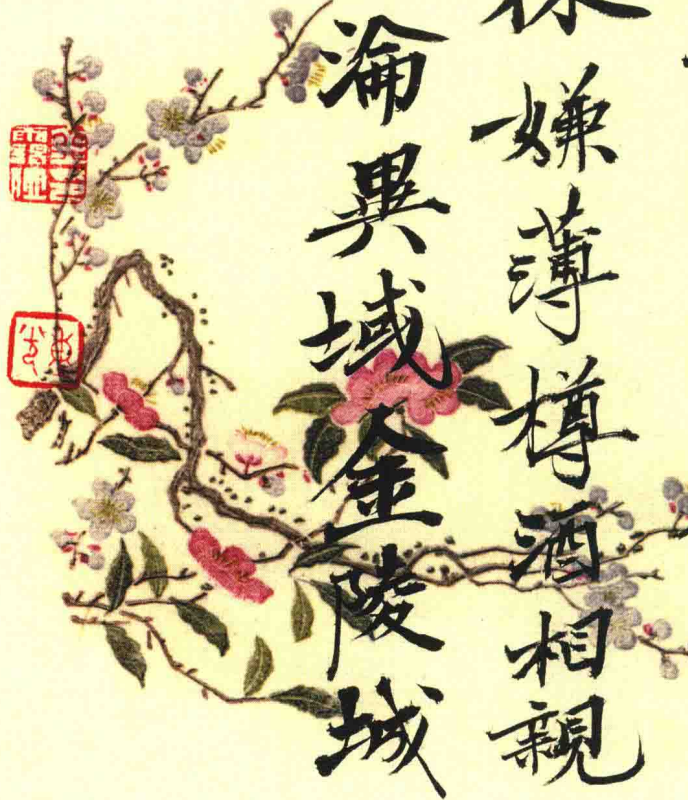 嫌薄樽酒相親
淪異域金陵城